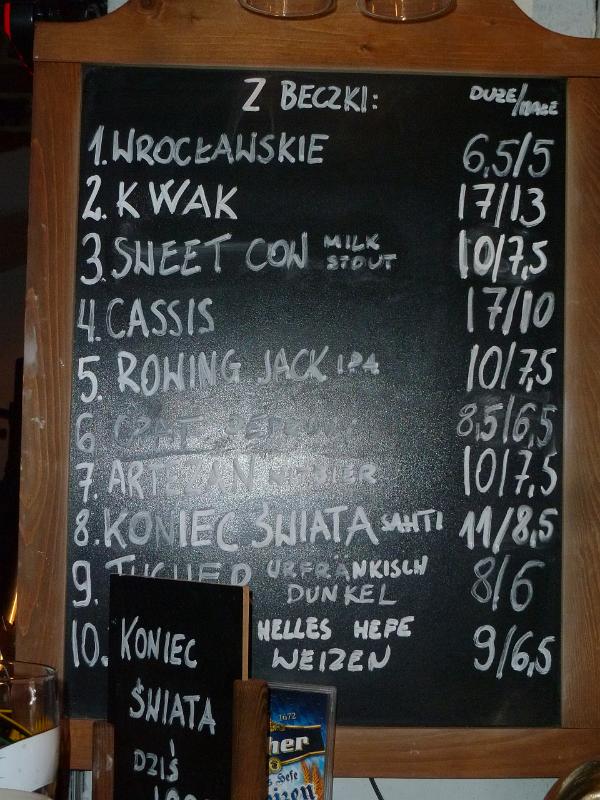 Z BECZKI: DUŻE/MAŁE
1. WROCŁAWSKIE 6,5/5
2. KWAK 17/13
3. SWEET COW MILK STOUT 10/7,5
4. CASSIS 17/10
5. ROWING JACK IPA 10/7,5
6 8,5/6,5
7. ARTEZAN 10/7,5
8. KONIEC ŚWIATA SAHTI 11/8,5
9. TUCHER URFRÄNKISCH DUNKEL 8/6
10. HELLES HEFE WEIZEN 9/6,5
KONIEC
ŚWIATA
DZIŚ
1672
her
Hefe
eizen